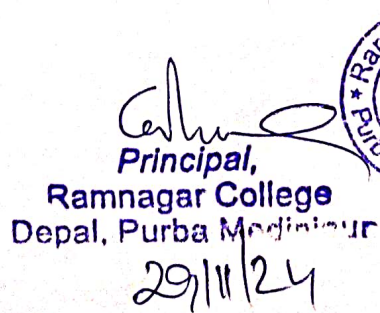 Principal,
Ramnagar College
Depal, Purba Medinipur
29/11/24